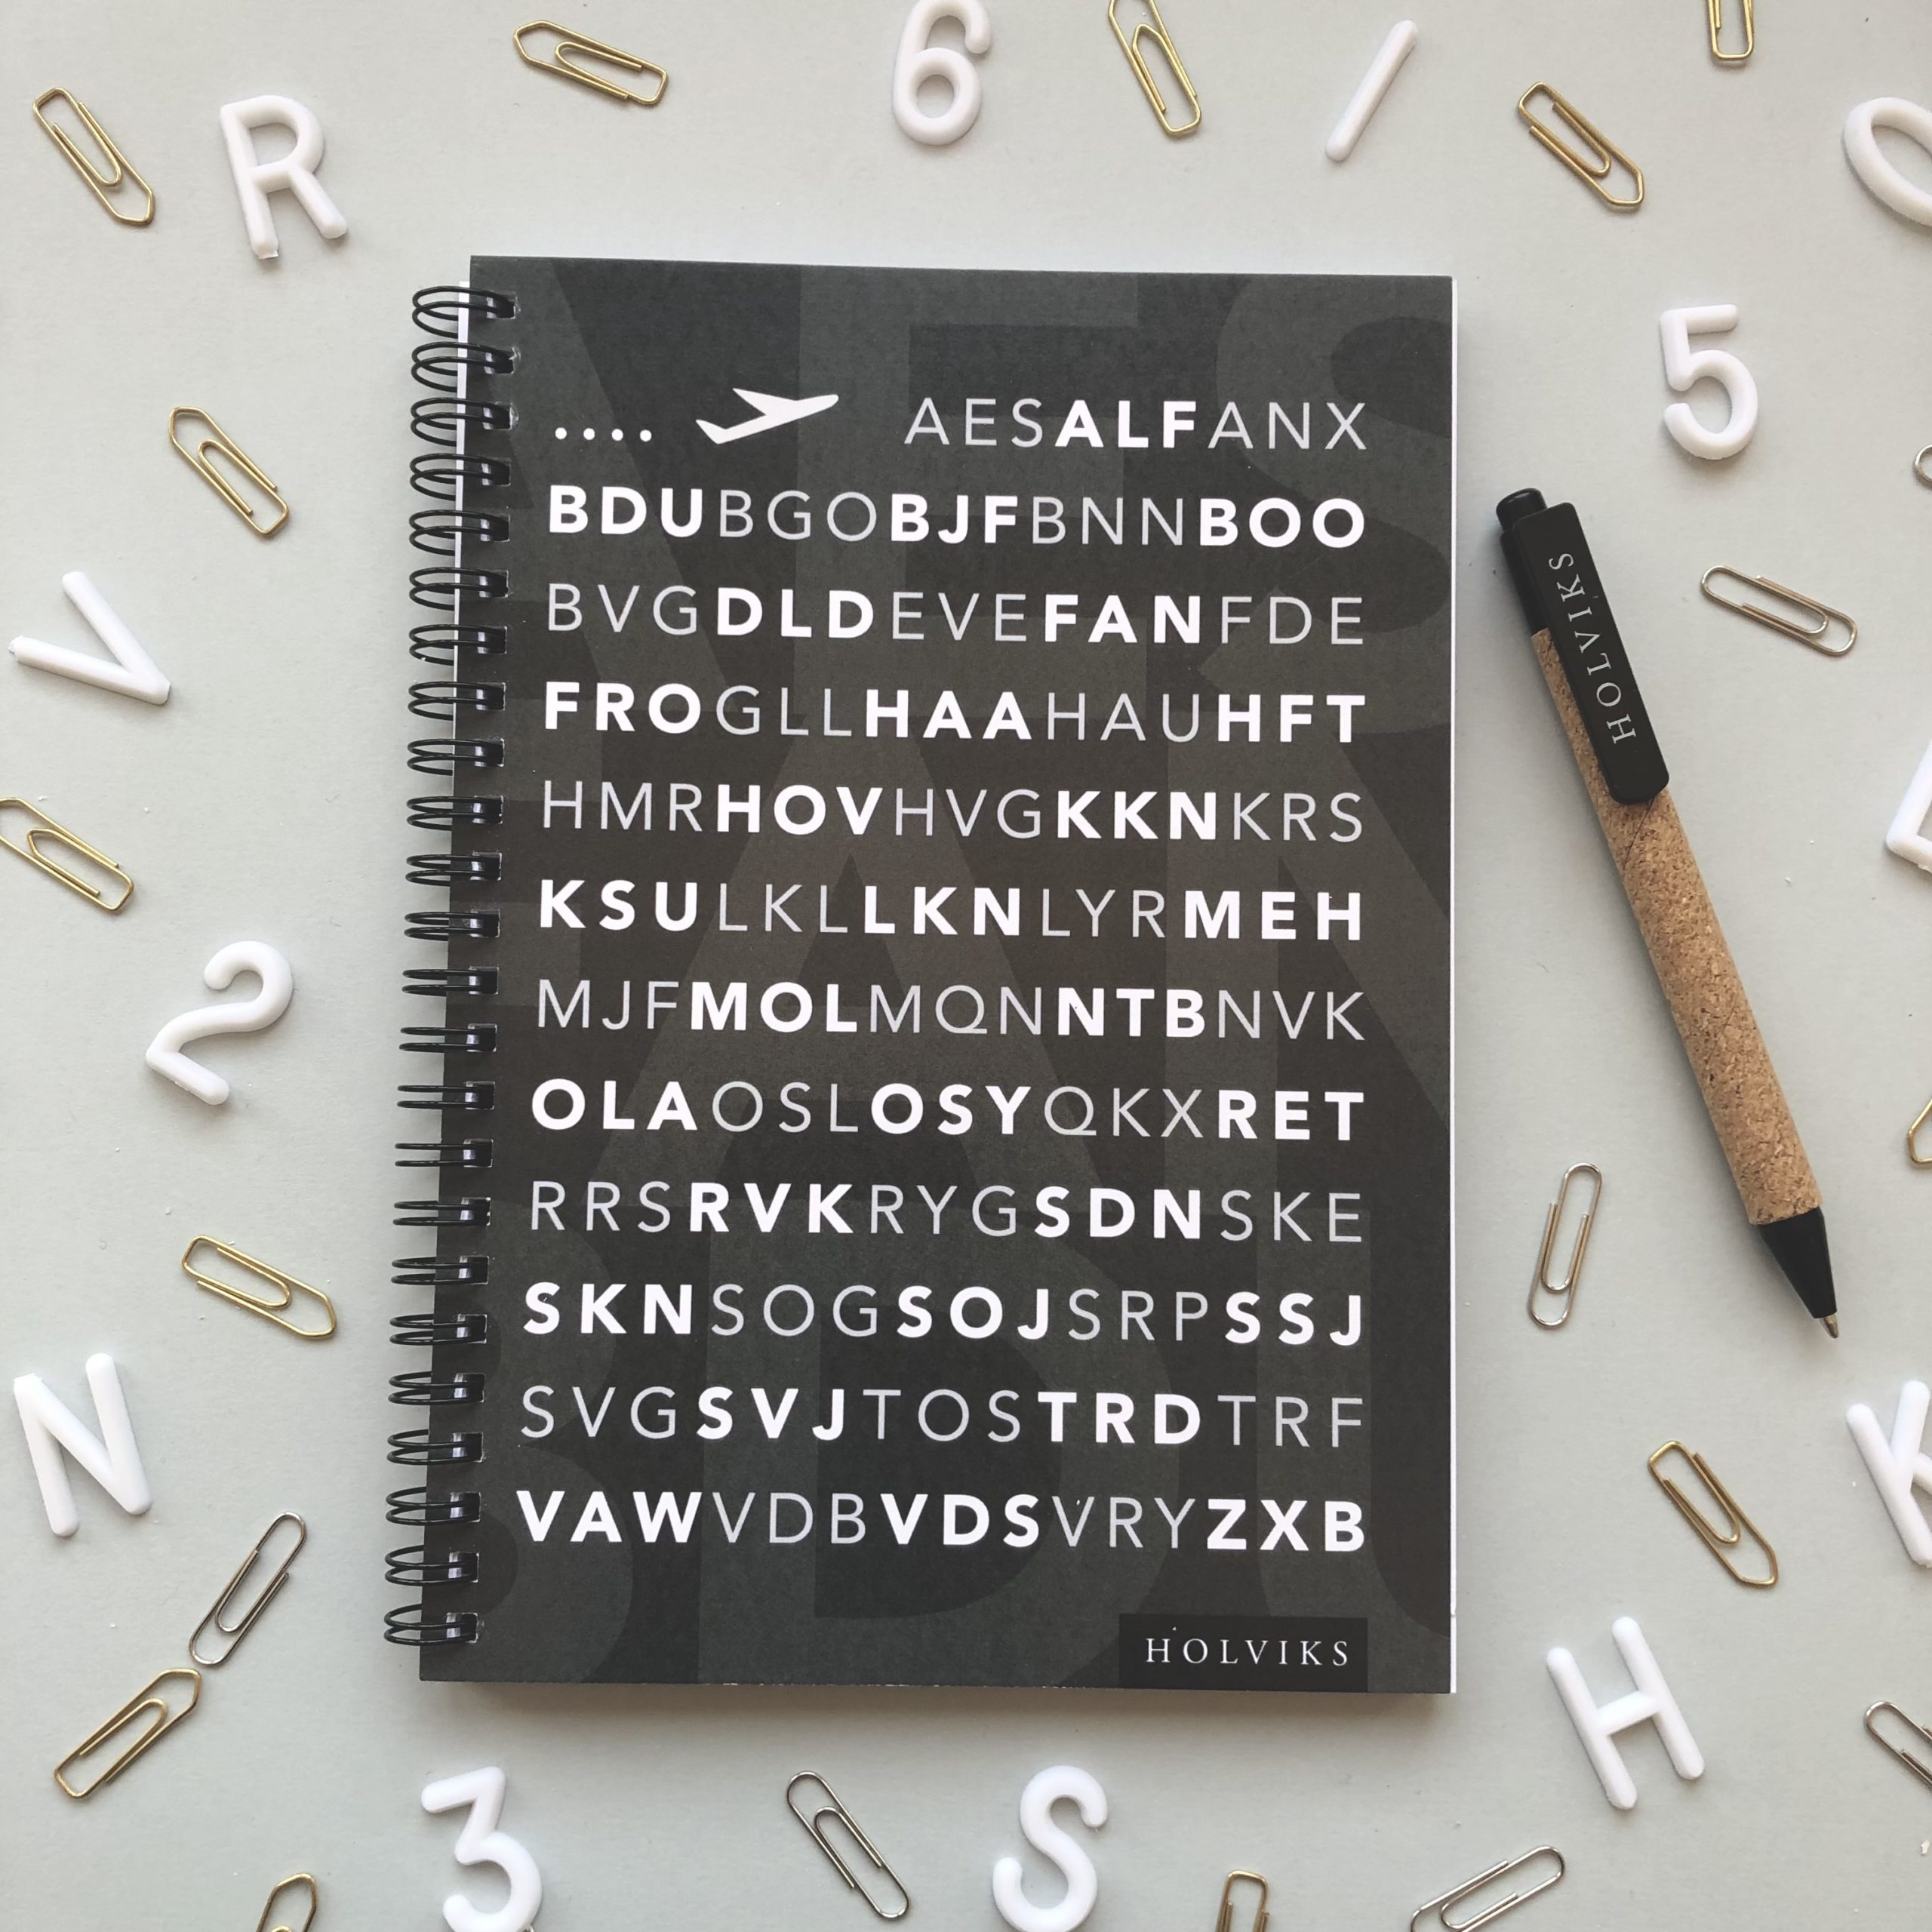 R
6
I
5
V
2
N
3
S
H
K
.... AESALFANX
BDUBGOBJFBNNBOO
BVGDLDEVEFANFDE
FROGLLHAAHAUHFT
HMRHOVHVGKKNKRS
KSULKLLKNLYRMEH
MJFMOLMQNNTBNVK
OLAOSLOSYQKXRET
RRSRVKRYGSDNSKE
SKNSOGSOJSRPSSJ
SVGSVJTOSTRDTRF
VAWVDBVDSVRYZXB
HOLVIKS
HOLVIKS